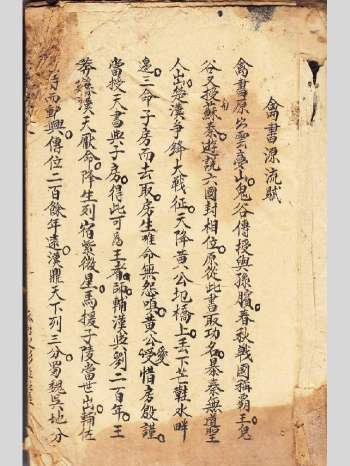 禽書源流賦
禽書原出雲夢山鬼谷傳授與孫臏春秋戰國稱霸王鬼
谷又授蘇秦遊說六國封相位原從此書取功名暴秦無道聖
人出楚漢爭鋒大戰征天降黃公圯橋上丟下芒鞋水畔
邊三命子房而去取房生唯命無怨唯黃公愛惜房殷謹
當授天書與子房得此可為王者師輔漢興劉二百年王
莽謀漢天厭命降生列宿紫微星馬援子陵當世出輔佐
而動興傳位二百餘年遠漢鼎天下列三分蜀魏吳地分